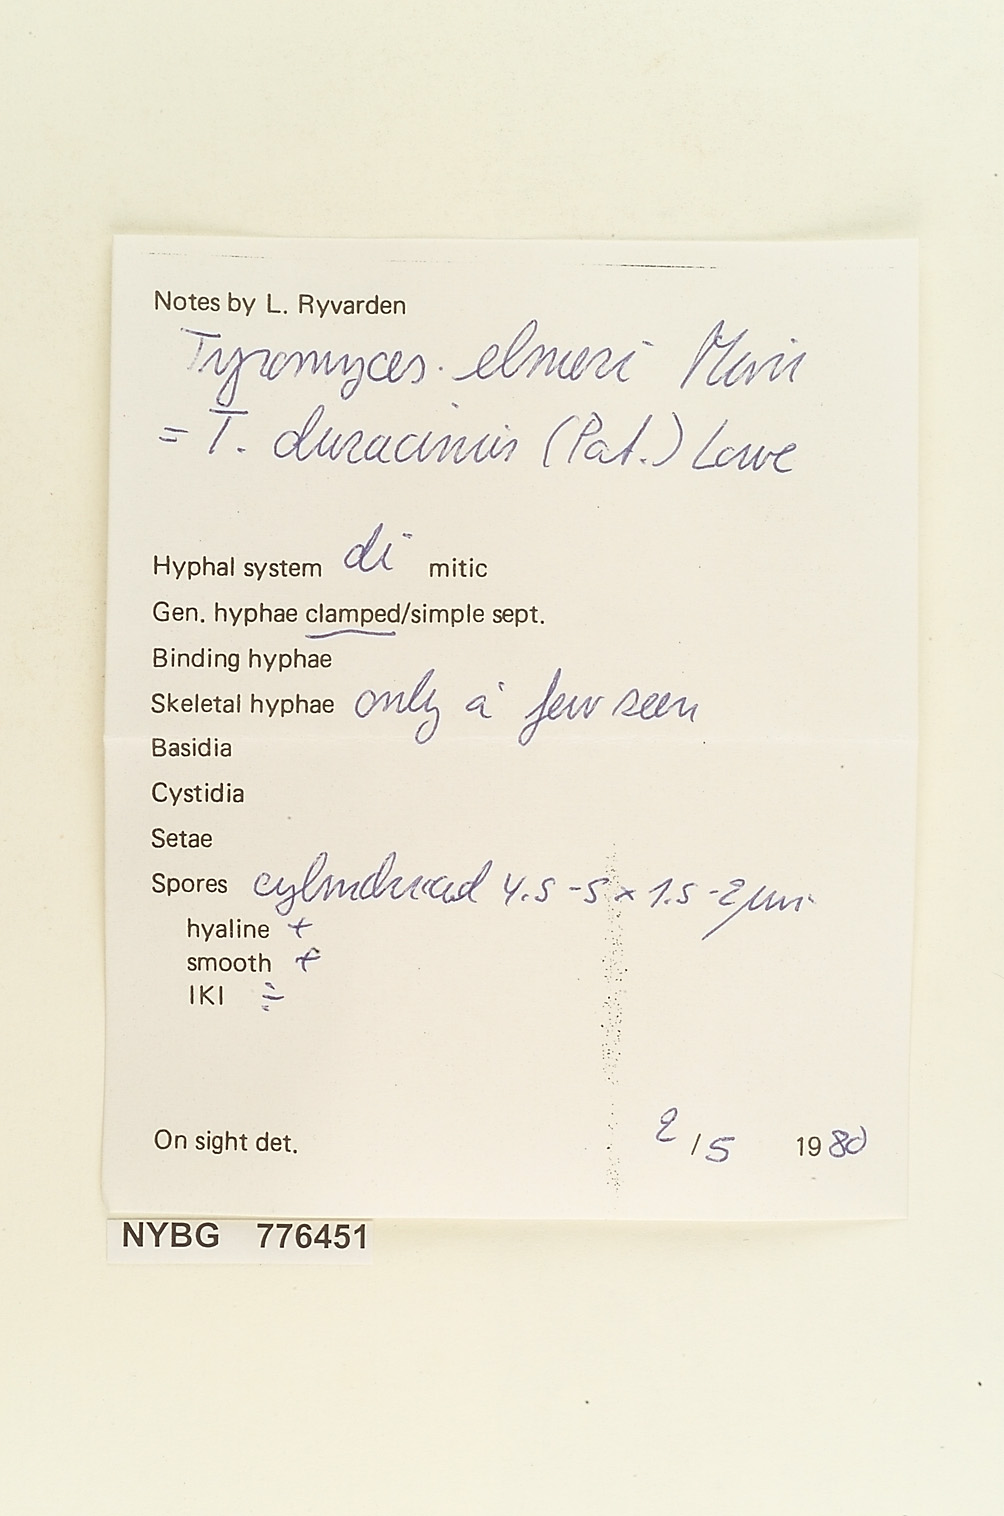 Notes by L. Ryvarden
Tyromyces elmeri Murr
= T. duracinus (Pat.) Lowe
Hyphal system di mitic
Gen. hyphae clamped/simple sept.
Binding hyphae
Skeletal hyphae only a few seen
Basidia
Cystidia
Setae
Spores cylindrical 4.5-5 x 1.5-2 µm
hyaline +
smooth +
IKI ÷
On sight det. 2/5 1980
NYBG 776451